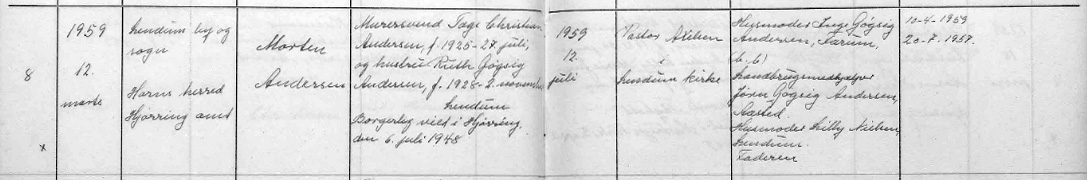 8
1959
12.
marts
x
Lendum by og
sogn
Horns herred
Hjørring amt
Morten
Andersen
Murersvend Tage Christian
Andersen, f. 1925-27. juli,
og hustru Ruth Gøgsig
Andersen, f. 1928-2. november
Lendum
Borgerlig viet i Hjørring
den 6. juli 1948
1959
12.
juli
Pastor
i
Lendum kirke
Husmoder Inge Gøgsig
Andersen, Farum,
b. b)
Landbrugsmedhjælper
Jørn Gøgsig Andersen,
Husmoder Lilly Nielsen,
Lendum.
Faderen
10-4-1959
20.7.1959.